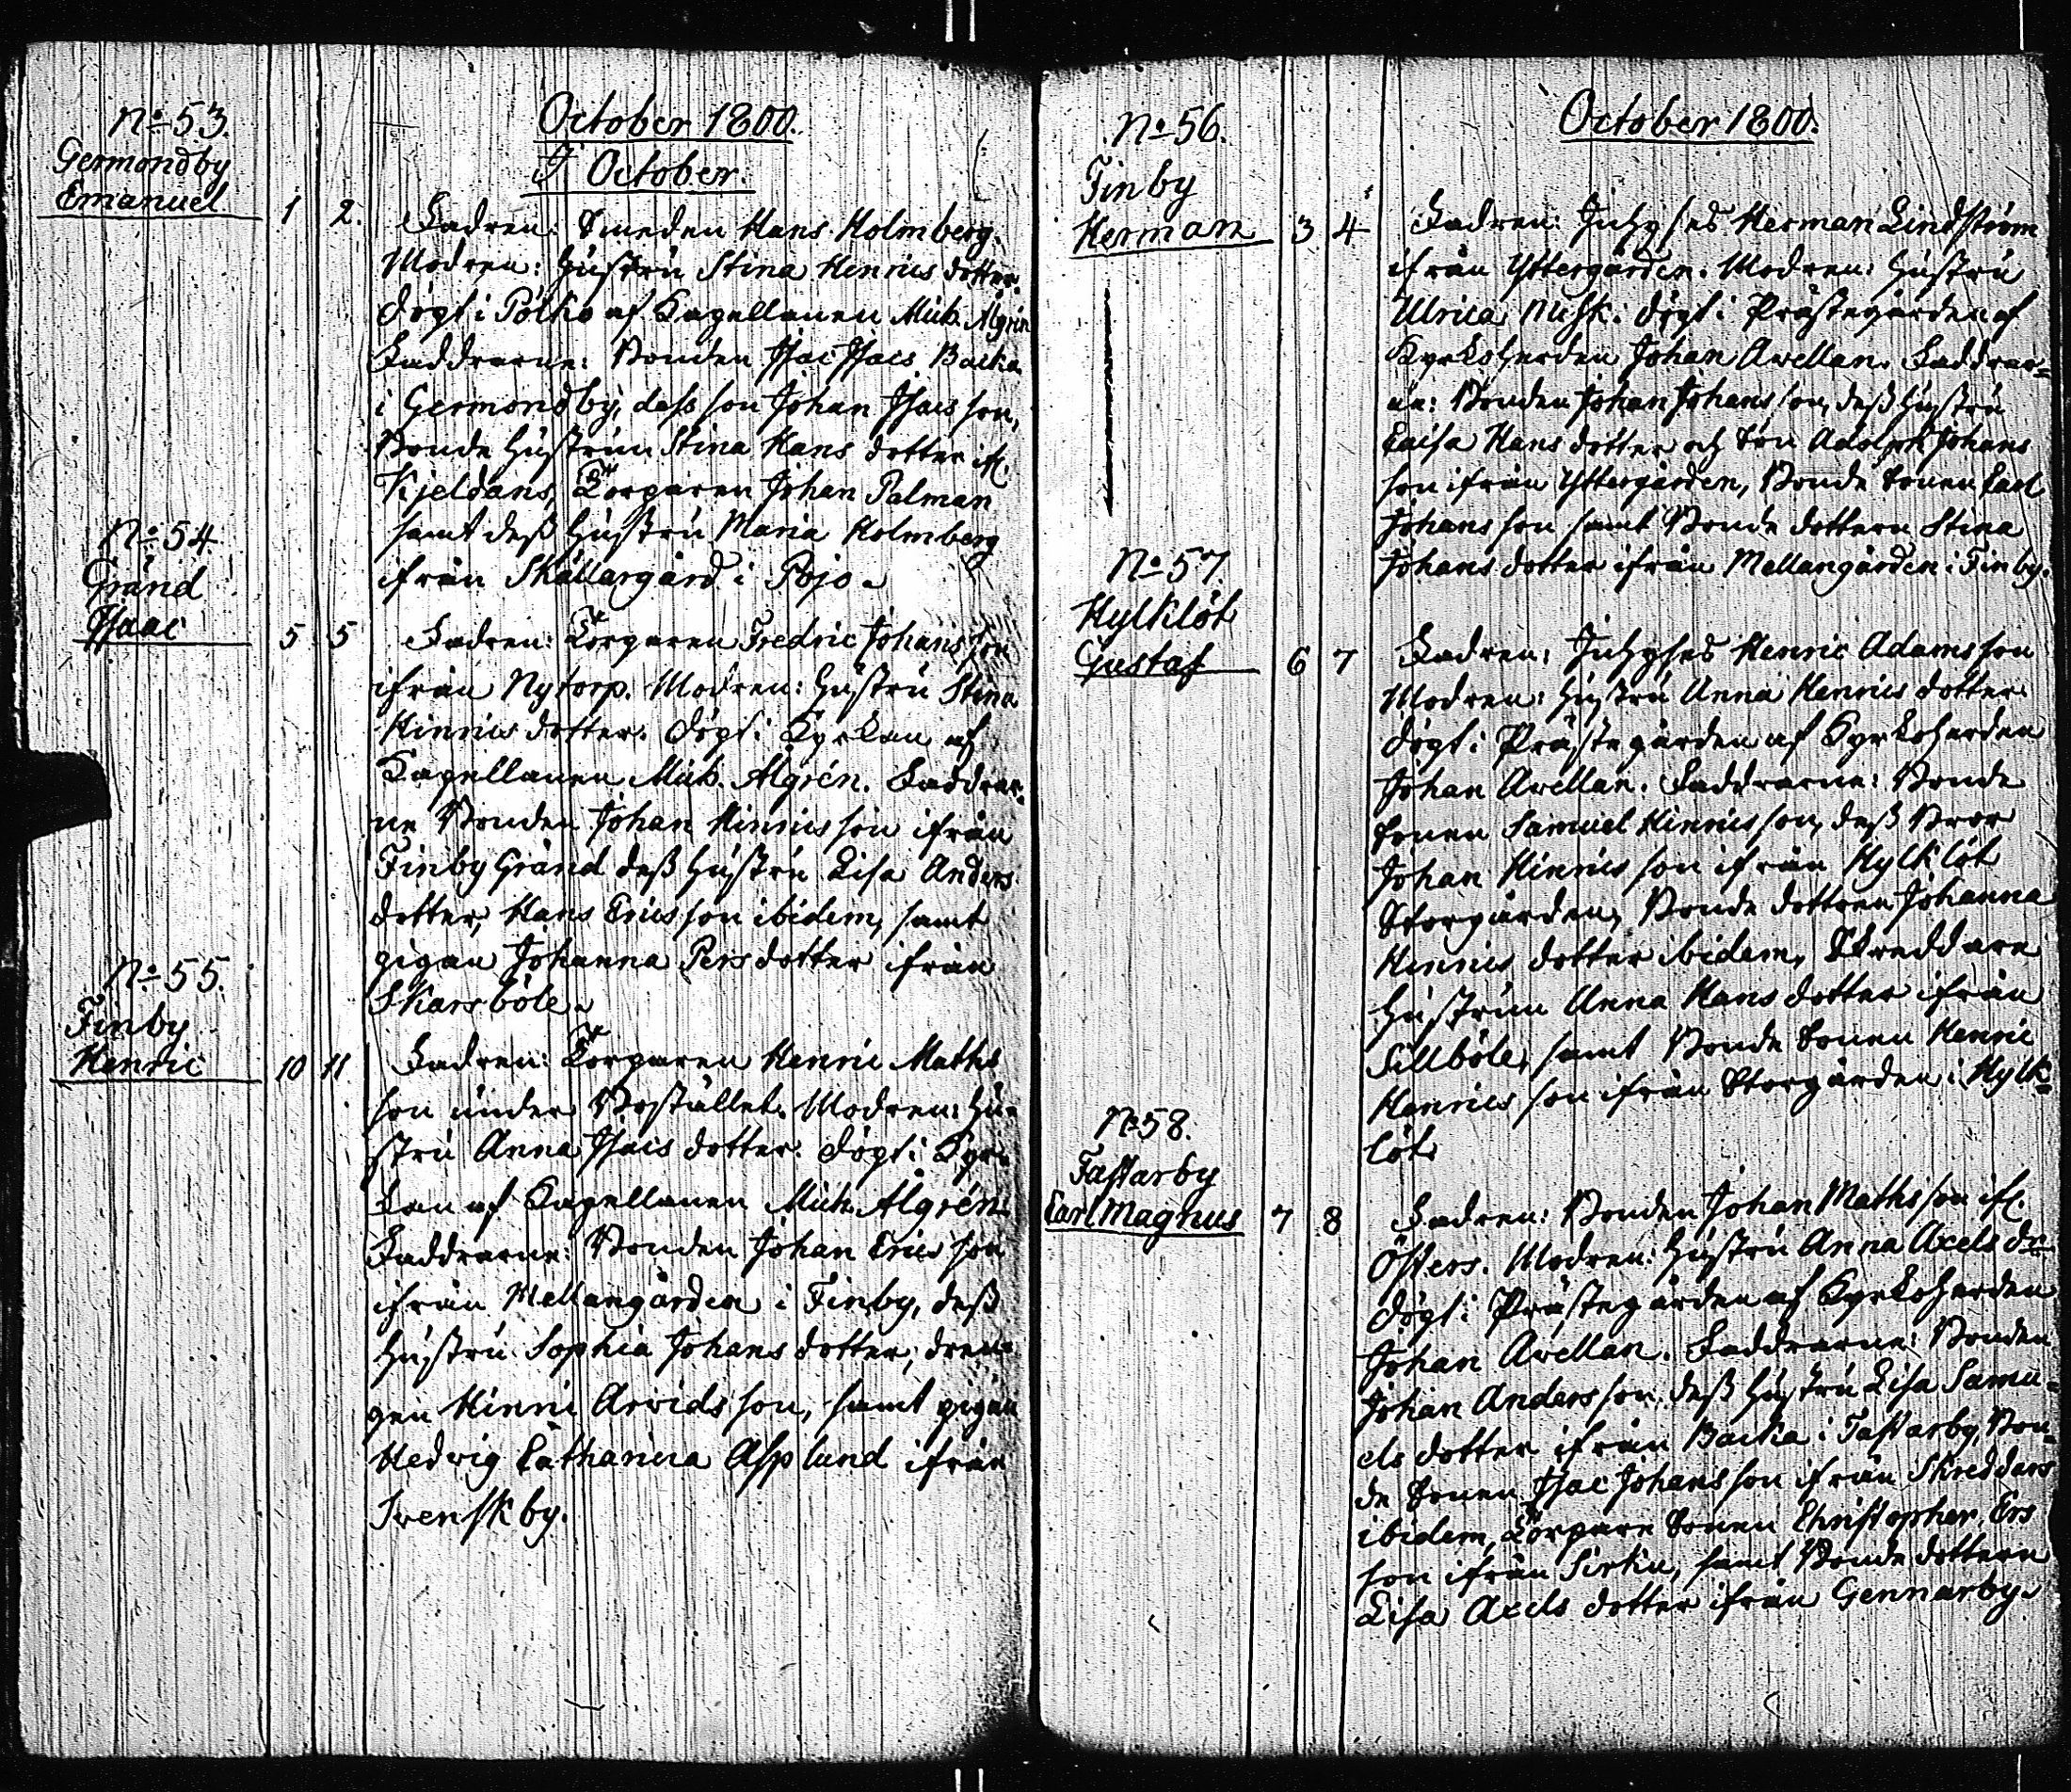 No 53.
Germondby
Emanuel 1 2.
October 1800.
I October.
Fadren: Smeden Hans Holmberg.
Modren: Hustru Stina Henrics dotter.
döpt i Pölko af Kapellanen Mich. Algrén
Faddrarne: Bonden Isac Isacs. Backa
i Germondby, dess son Johan Isacs son,
Bonde Hustrun Stina Hans dotter ifr.
Kjeldans, Torparen Johan Palman
samt dess Hustru Maria Holmberg
ifrån Skällargård i Pojo.
No 54.
Gränd
Isaac 5 5
Fadren: Torparen Fredric Johans son
ifrån Nytorp. Modren: Hustru Stina
Hinrics dotter. döpt i Kyrkan af
Kapellanen Mich. Algrén. Faddrar-
ne Bonden Johan Hinrics son ifrån
Finby Gränd dess Hustru Lisa Anders
dotter, Hans Erics son ibidem, samt
pigan Johanna Pers dotter ifrån
Skarsböle.
No 55.
Finby
Henric 10 11
Fadren: Torparen Henric Maths
son under Bostället. Modren: Hu-
stru Anna Isacs dotter. döpt i Kyr-
kan af Kapellanen Mich. Algrén.
Faddrarne: Bonden Johan Erics son
ifrån Mellangården i Finby, dess
Hustru Sophia Johans dotter, dren-
gen Hinric Arvids son, samt pigan
Hedvig Catharina Asplund ifrån
Svenskby.
No 56.
Finby
Herman 3 4
October 1800.
Fadren: Inhyses Herman Lindström
ifrån Yttergården. Modren: Hustru
Ulrica Musk. döpt i Prästegården af
Kyrkoherden Johan Avellan. Faddrar-
ne: Bonden Johan Johans son, dess Hustru
Caisa Hans dotter och Son Adolph Johans
son ifrån Yttergården, Bonde Sonen Carl
Johans son samt Bonde dottern Stina
Johans dotter ifrån Mellangården i Finby.
No 57.
Hylklöt
Gustaf 6 7
Fadren: Inhyses Henric Adams son
Modren: Hustru Anna Henrics dotter.
döpt i Prästegården af Kyrkoherden
Johan Avellan. Faddrarne: Bonde
Sonen Samuel Hinrics son, dess Bror
Johan Hinrics son ifrån Hylklöt
Storgården, Bonde dottren Johanna
Hinrics dotter ibidem, Skreddare
Hustrun Anna Hans dotter ifrån
Sillböle, samt Bonde Sonen Henric
Henrics son ifrån Storgården i Hylk-
löt.
No 58.
Fastarby
Carl Magnus 7 8
Fadren: Bonden Johan Maths son ifr.
Östers. Modren: Hustru Anna Axels dr
döpt i Prästegården af Kyrkoherden
Johan Avellan. Faddrarne: Bonden
Johan Anders son, dess Hustru Lisa Samu-
els dotter ifrån Backa i Fastarby, Bon-
de Sonen Isac Johans son ifrån Skreddars
ibidem, Torpare Sonen Christopher Ers
son ifrån Sirkin, samt Bonde dottern
Lisa Axels dotter ifrån Gennarby.